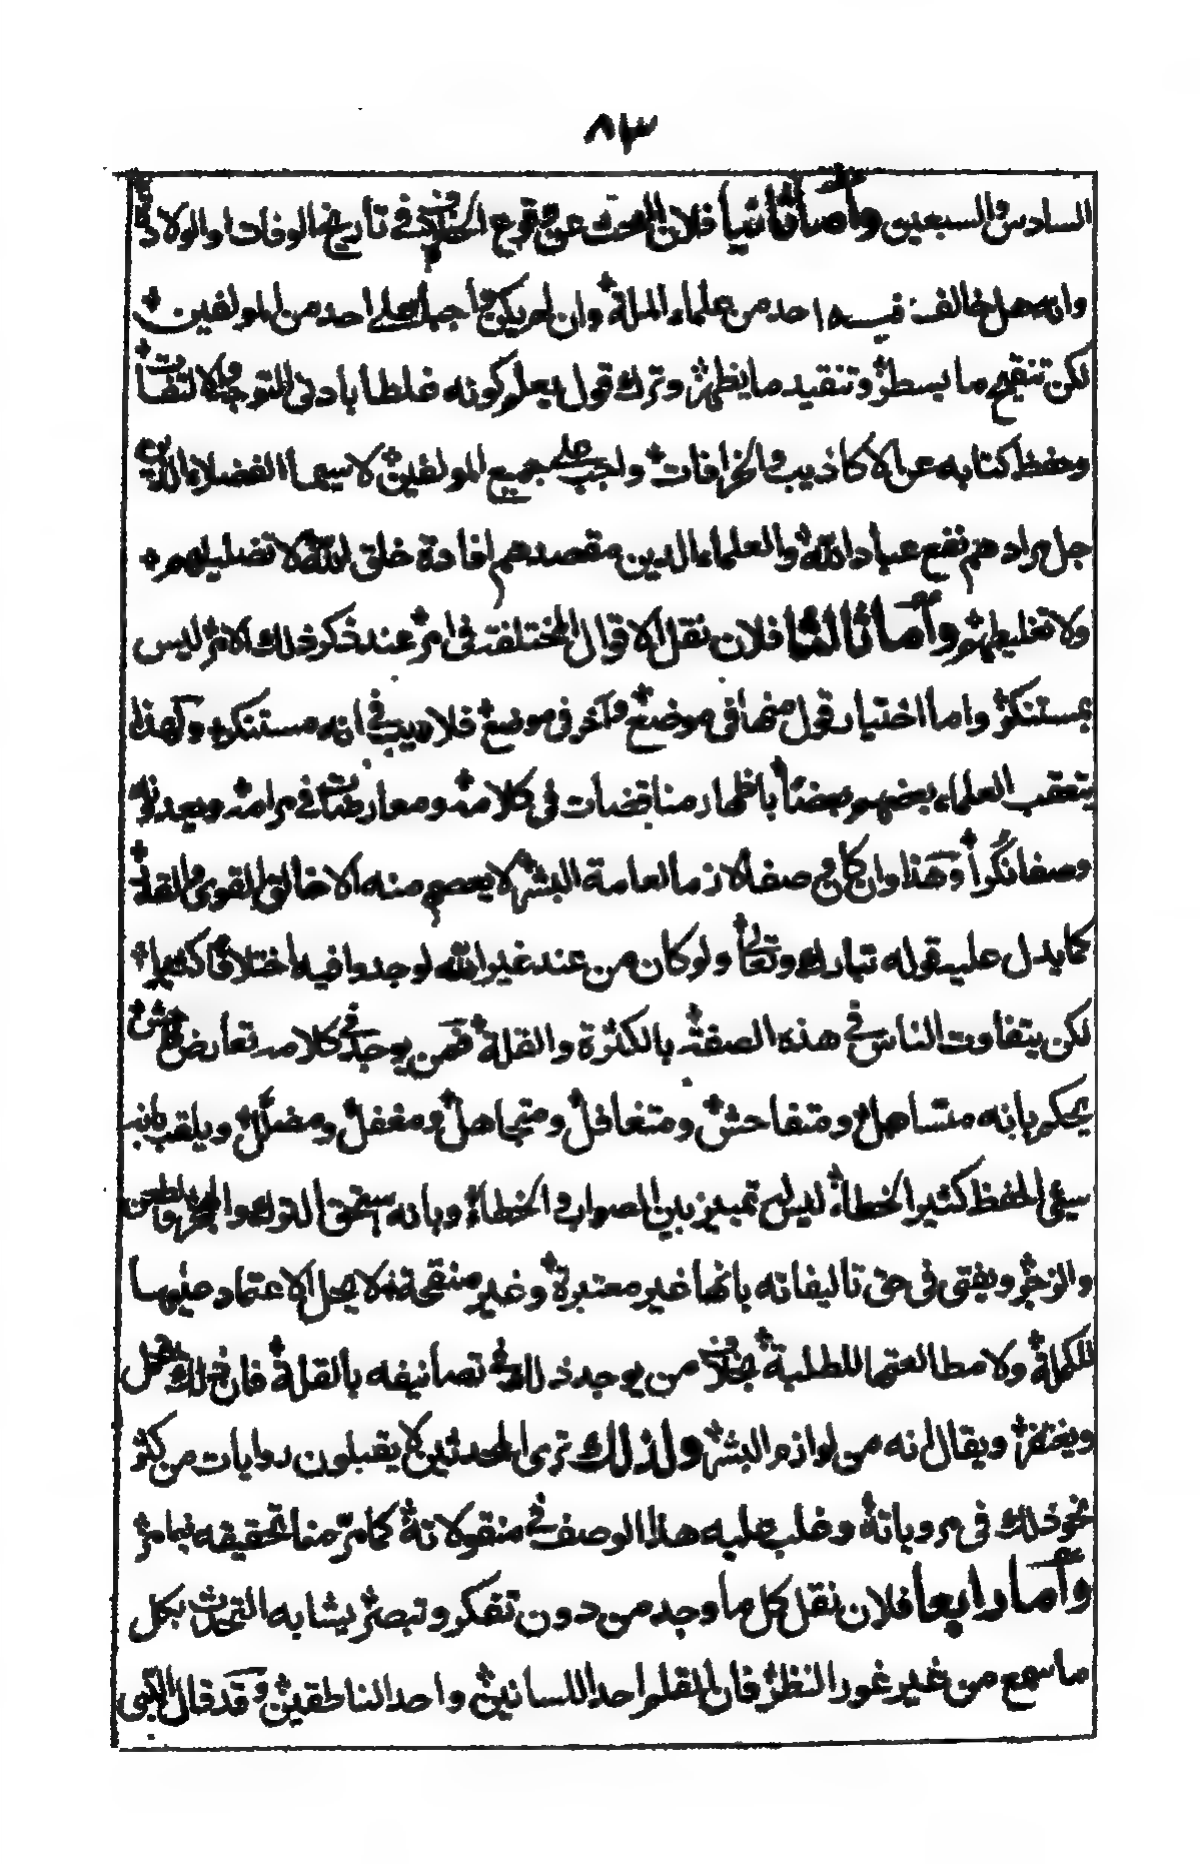 ٨٣
السادس والسبعين وأما ثانيا فلان البحث عن وقوع الخلاف في تأريخ الوفات او الولادة
وانه هل خالف فيه احد من علماء الملة وان لم يكن واجبا على احد من المولفين
لكن تنقيح ما يسطر وتنقيد ما يظهر وترك قول يعلم كونه غلطا بادنى التوجه والالتفات
وحفظ كتابه عن الاكاذيب والخرافات واجب على جميع المولفين لا سيما الفضلاء الذين
جل مرادهم نفع عباد الله والعلماء الذين مقصدهم افادة خلق الله لا تضليلهم
ولا تغليطهم وأما ثالثا فلان نقل الاقوال المختلفة في امر عند ذكر ذلك الامر ليس
بمستنكر واما اختيار قول منها في موضع وآخر في موضع فلا ريب في انه مستنكر وكهذا
يتعقب العلماء بعضهم بعضا باظهار مناقضات في كلامه ومعارضات في مرامه ويعدونه
وصفا نكرا وهذا وان كان صفة لازمة لعامة البشر لا يعصم منه الا خالق القوى والقدر
كما يدل عليه قوله تبارك وتعالى ولو كان من عند غير الله لوجدوا فيه اختلافا كثيرا
لكن يتفاوت الناس في هذه الصفة بالكثرة والقلة فمن يوجد في كلامه تعارض فاحش
يحكم بانه متساهل ومتفاحش ومتغافل ومتجاهل ومغفل ومضلل ويلقب بانه
سيئ الحفظ كثير الخطاء ليس له تمييز بين الصواب والخطاء وبانه استحق اللوم والجرح والطعن
والزجر ويفتى في حق تاليفاته بانها غير معتبرة وغير منقحة فلا يحل الاعتماد عليها
للكملة ولا مطالعتها للطلبة بخلاف من يوجد ذلك في تصانيفه بالقلة فان ذلك يتحمل
ويغتفر ويقال انه من لوازم البشر ولذلك ترى المحدثين لا يقبلون روايات من كثر
نحو ذلك في مروياته وغلب عليه هذا الوصف في منقولاته كما مر منا تحقيقه فيما مر
وأما رابعا فلان نقل كل ما وجد من دون تفكر وتبصر يشابه التحديث بكل
ما سمع من غير غور النظر فان القلم احد اللسانين واحد الناطقين وقد قال النبي